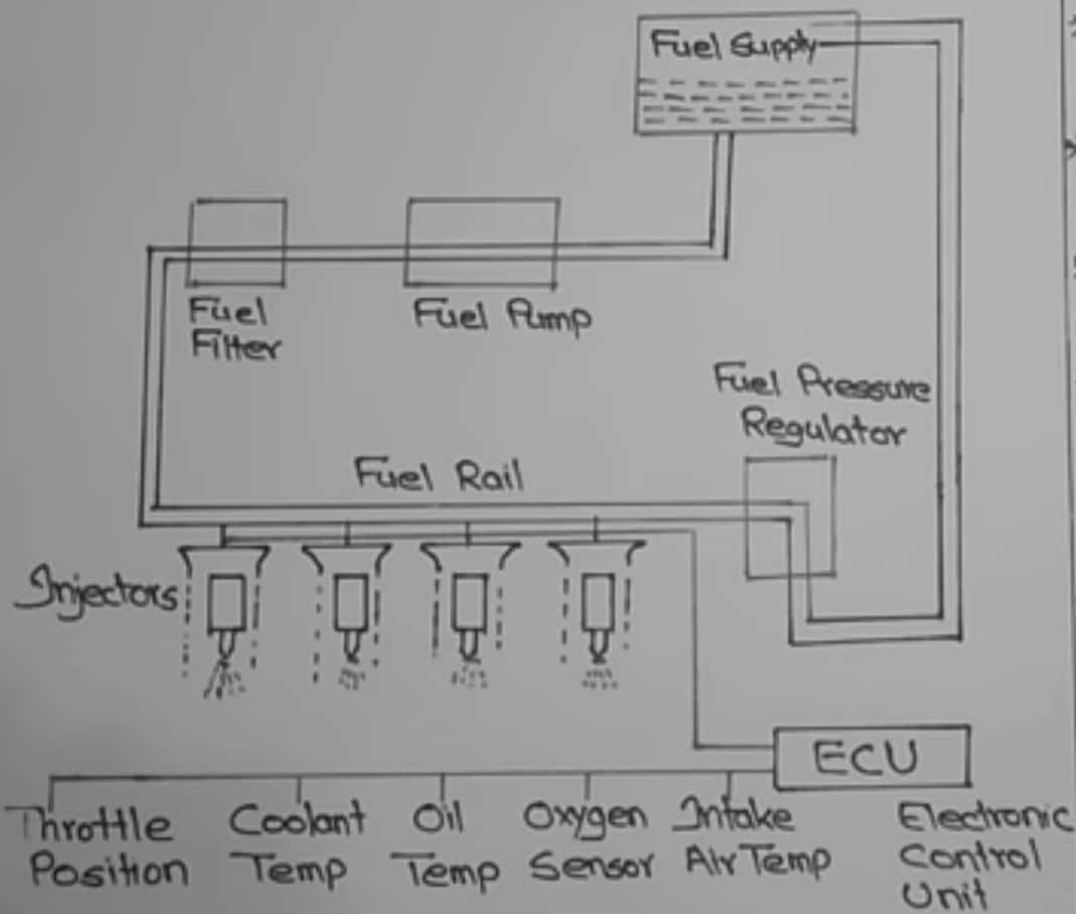 Fuel Supply
Fuel
Filter
Fuel Pump
Fuel Pressure
Regulator
Fuel Rail
Injectors
ECU
Throttle
Position
Coolant
Temp
Oil
Temp
Oxygen
Sensor
Intake
Air Temp
Electronic
Control
Unit